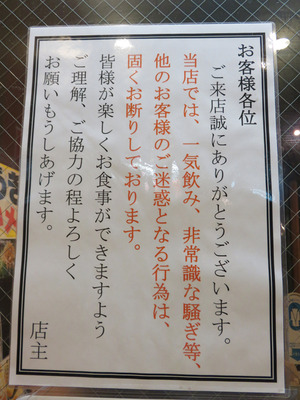 お客様各位
ご来店誠にありがとうございます。
当店では、一気飲み、非常識な騒ぎ等、
他のお客様のご迷惑となる行為は、
固くお断りしております。
皆様が楽しくお食事ができますよう
ご理解、ご協力の程よろしく
お願いもうしあげます。
店主